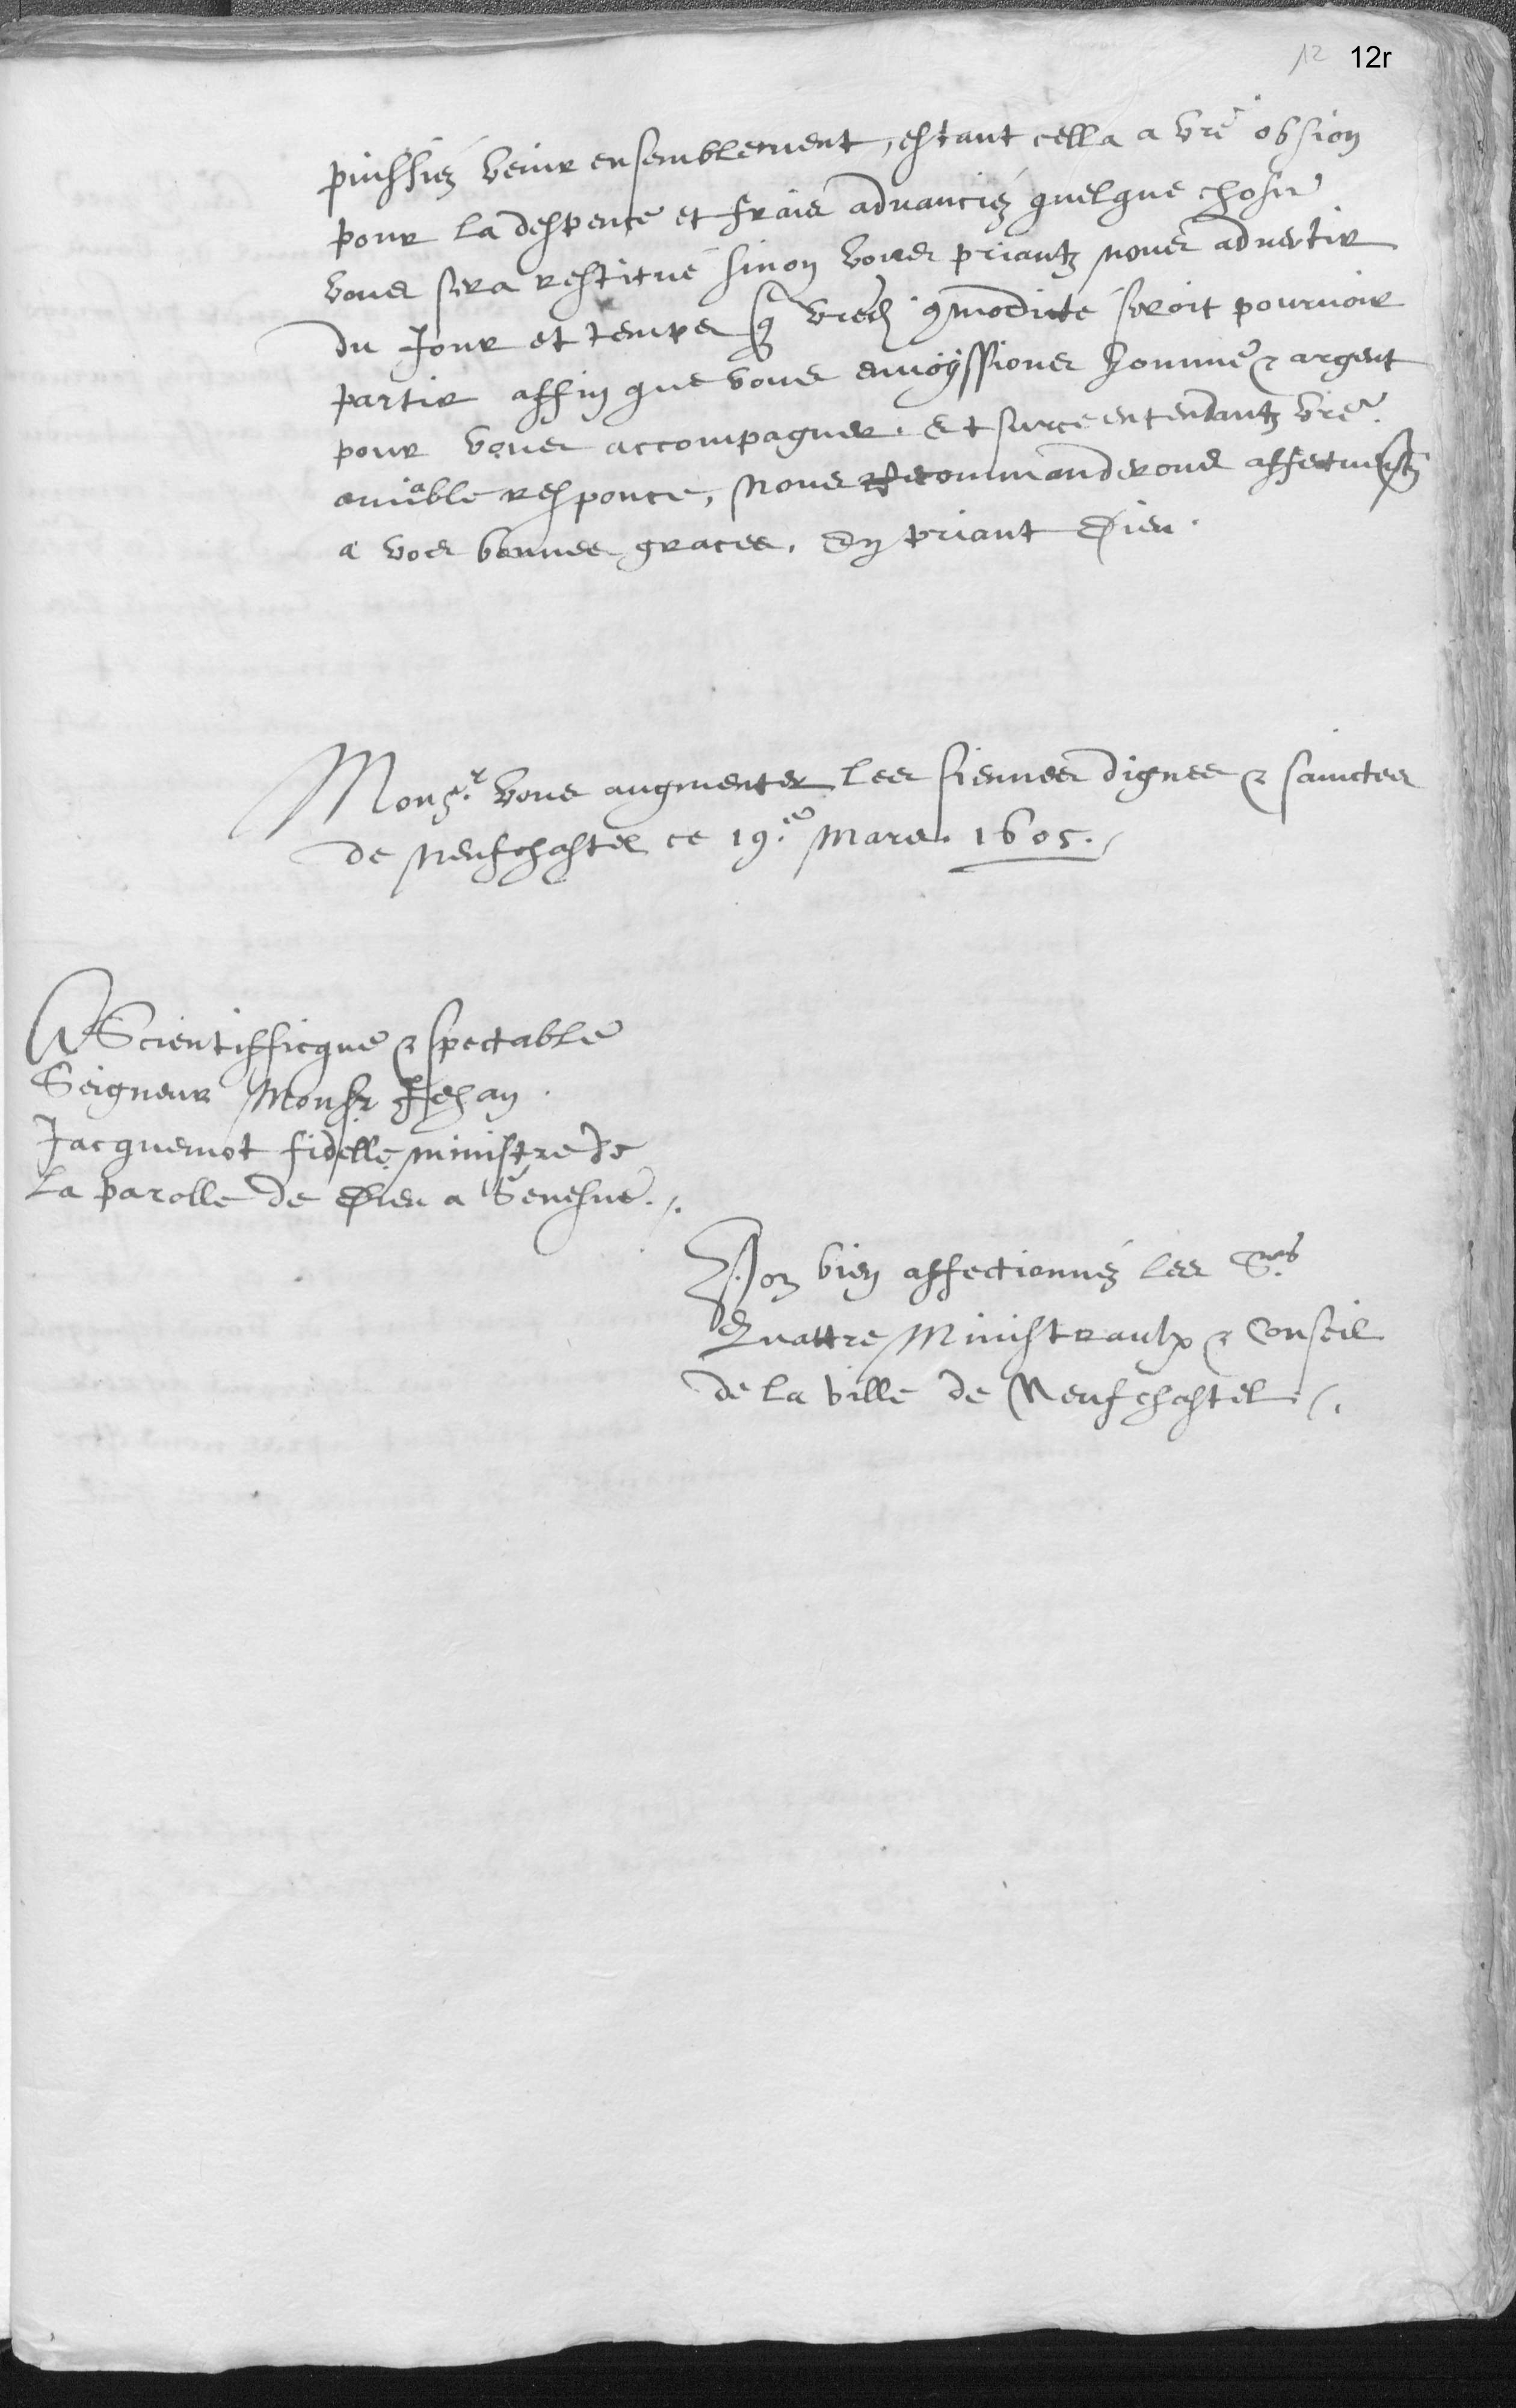 12 12r
puissiéz venir ensemblement, estant cella a vre obsion
pour la despence et frais advanciéz quelque chose
vous sera restitué sinon vous priantz nous advertir
du Jour et temps q vred. 9modité seroit pourvoir
partir affin que vous envoyssions homme & argent
pour vous accompagner. Et surce entendantz vre
amiable responce, nous Recommanderons
a vos bonnes graces. En priant Dieu.
Monsr. vous augmenter les siennes dignes & sainctes
de Neufchastel ce 19.e Mars. 1605.
A Scientifficque & spectable
Seigneur Monsr Jehan
Jacquemot fidelle ministre de
la parolle de Dieu a Genesve.
Voz bien affectionnéz les Srs
Quattre Ministraulx & Conseil
de la ville de Neufchastel.